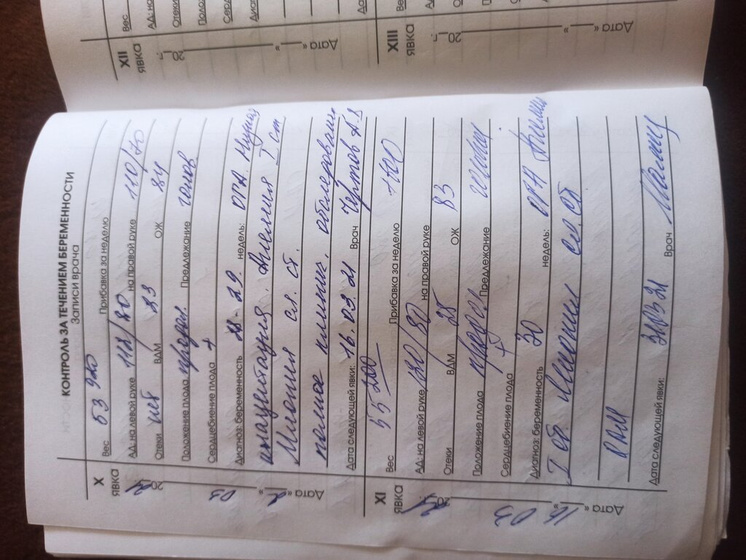 КОНТРОЛЬ ЗА ТЕЧЕНИЕМ БЕРЕМЕННОСТИ
Записи врача
X
ЯВКА
2021
Дата « 2 » 03
Вес 53 900 Прибавка за неделю
АД: на левой руке 118/80 на правой руке 110/70
Отеки нет ВДМ 23 ОЖ 84
Положение плода продол Предлежание голов
Сердцебиение плода +
Диагноз: беременность 28-29. недель: ОГА.
плацентация. Анемия I ст
Миопия сл. ст.
полное клинич. обследовани
Дата следующей явки: 16.03.21 Врач
XI
ЯВКА
2021
Дата « 16 » 03
Вес 55 200 Прибавка за неделю
АД: на левой руке 120/80 на правой руке
Отеки ВДМ 25 ОЖ 83
Положение плода продол Предлежание головн
Сердцебиение плода +
Диагноз: беременность 30 недель: ОГА Анемия
I ст Миопия сл.ст
Дата следующей явки: 310321 Врач
XII
ЯВКА
20 г.
Дата « »
Вес
АД: на
Отеки
Поло
Серд
Диагн
XIII
ЯВКА
20 г.
Дата « »
Вес
АД: